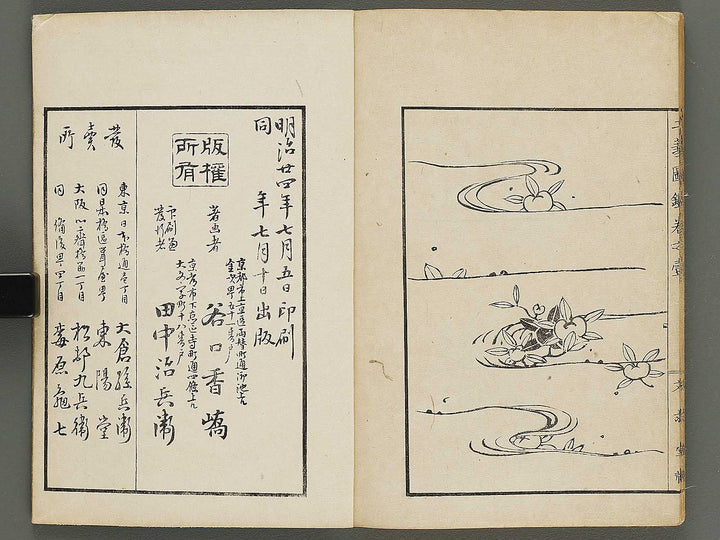 工藝圖鑑 卷之壹
芸艸堂
明治廿四年七月五日印刷
同年七月十日出版
版權所有
著畫者
京都市上京區両替町通御池上ル
金吹町五十一番戸
谷口香嶠
印刷兼
發行者
京都市下京區寺町通四條上ル
大文字町十八番戸
田中治兵衛
發賣所
東京日本橋通壱丁目 大倉孫兵衛
同 東陽堂
大阪心斎橋 一丁目 松邨九兵衛
同 備後町四丁目 梅原龜七